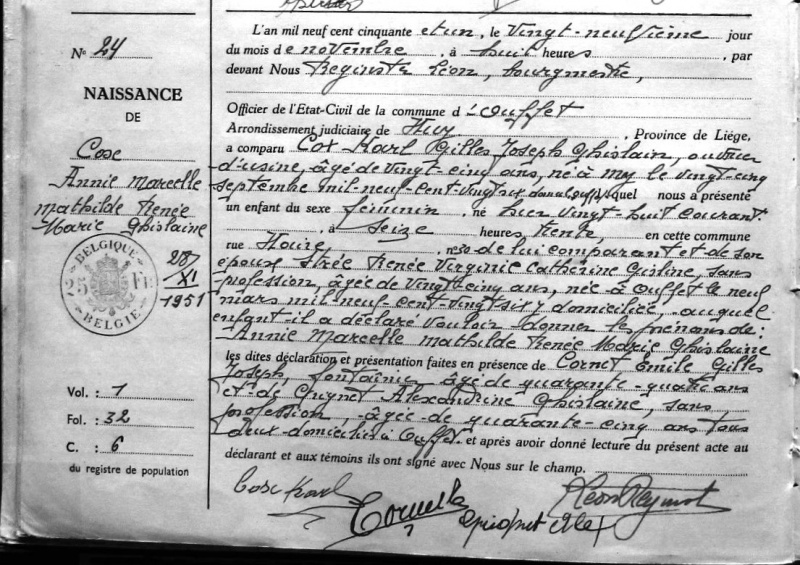 N° 24
NAISSANCE
DE
Cox
Annie Marcelle
Mathilde Renée
Marie Ghislaine
BELGIQUE
25 Fr
BELGIE
28/XI
1951
Vol. : 1
Fol. : 32
C. : 6
du registre de population
L'an mil neuf cent cinquante et un, le vingt-neufième jour
du mois de novembre, à huit heures, par
devant Nous Reginster Léon, bourgmestre,
Officier de l'Etat-Civil de la commune d'Ouffet
Arrondissement judiciaire de Huy, Province de Liége,
a comparu Cox Karl Gilles Joseph Ghislain, ouvrier
d'usine, âgé de vingt-cinq ans, né à My le vingt-cinq
septembre mil-neuf-cent-vingt-six, lequel nous a présenté
un enfant du sexe féminin, né hier vingt-huit courant
à seize heures trente, en cette commune
rue Hoire, n° 30 de lui comparant et de son
épouse Strée Renée Virginie Catherine Gisline, sans
profession, âgée de vingt-cinq ans, née à Ouffet le neuf
mars mil-neuf-cent-vingt six y domiciliée, auquel
enfant il a déclaré vouloir donner les prénoms de :
Annie Marcelle Mathilde Renée Marie Ghislaine
les dites déclaration et présentation faites en présence de Cornet Emile Gilles
Joseph, fontainier, âgé de quarante-quatre ans
et de Grignet Alexandrine Ghislaine, sans
profession, âgée de quarante-cinq ans tous
deux domiciliés à Ouffet et après avoir donné lecture du présent acte au
déclarant et aux témoins ils ont signé avec Nous sur le champ.
Cox Karl
Léon Reginster